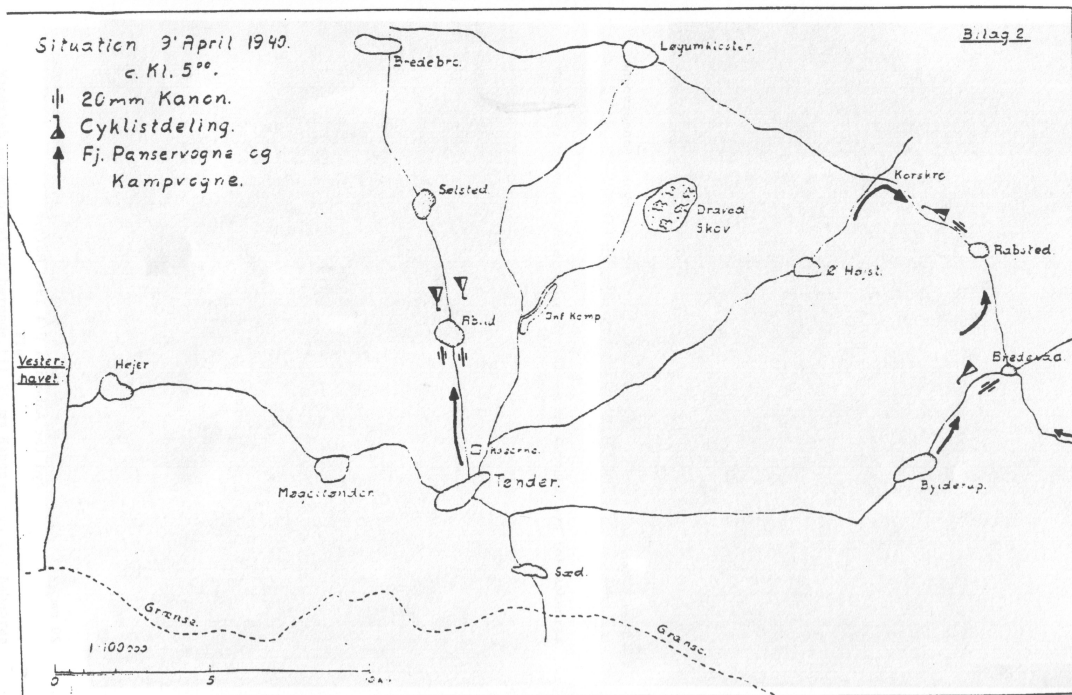 Situation 9' April 1940.
c. Kl. 5⁰⁰.
20mm Kanon.
Cyklistdeling.
Fj. Panservogne og
Kampvogne.
Bilag 2
Bredebro.
Løgumkloster.
Korskro
Sølsted
Draved
Skov
Rabsted.
Ø Højst.
Abild
Inf Komp.
Vester-
havet.
Højer
Bredevad.
Kaserne.
Møgeltønder.
Tønder.
Bylderup.
Sæd.
Grænse.
Grænse.
1:100000
0 5 10 Km